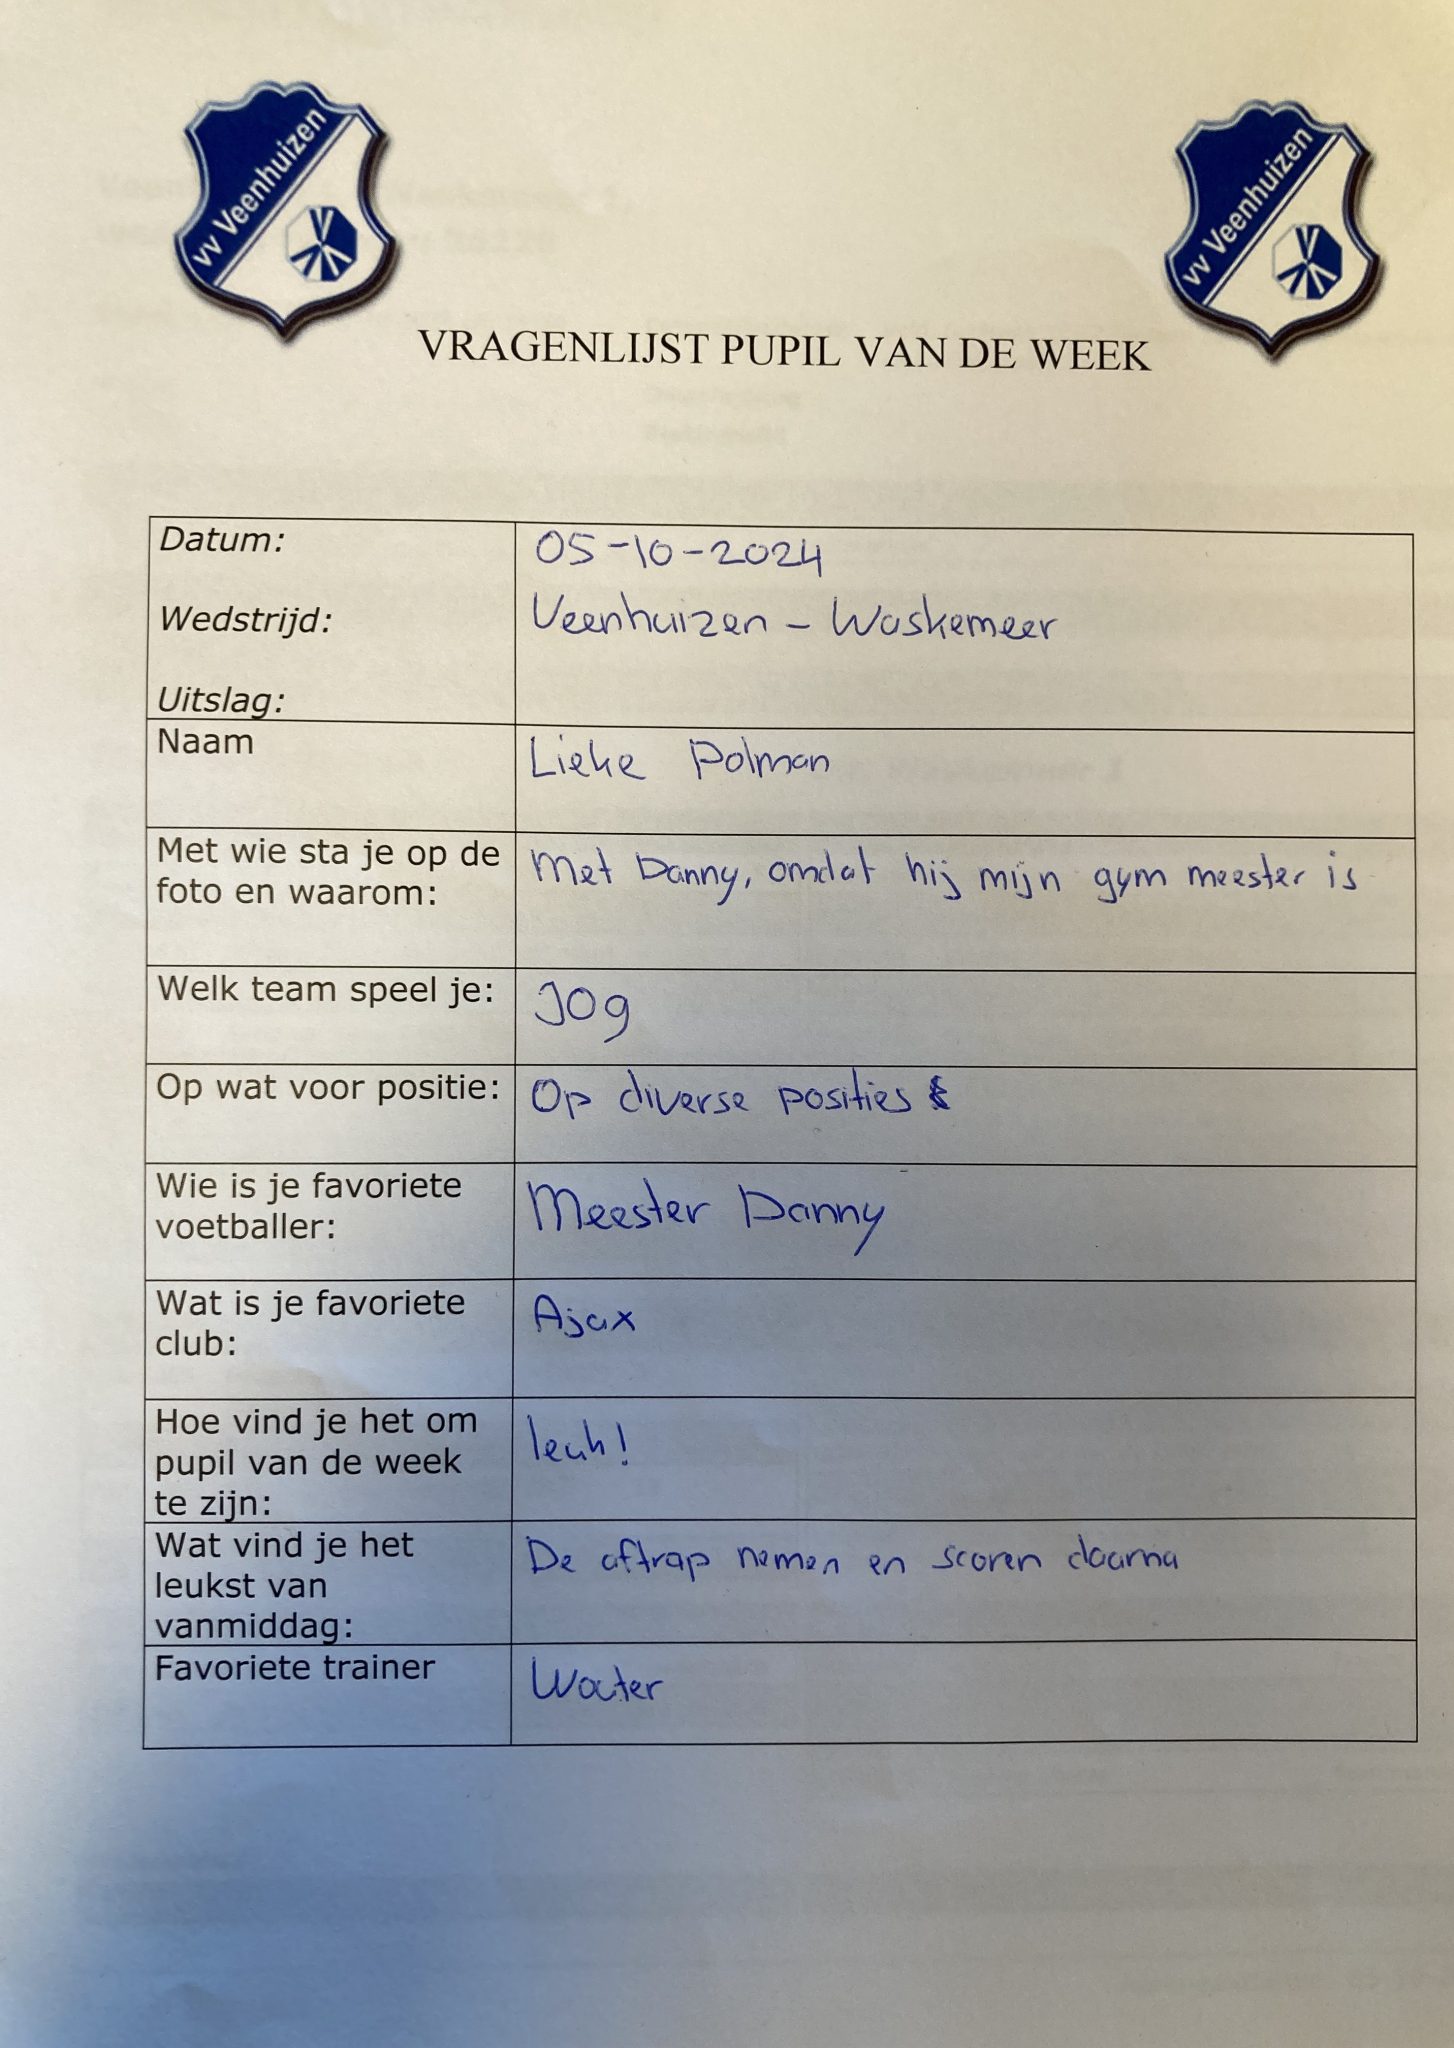 vv Veenhuizen
vv Veenhuizen
VRAGENLIJST PUPIL VAN DE WEEK
Datum: 05-10-2024
Wedstrijd: Veenhuizen - Waskemeer
Uitslag:
Naam Lieke Polman
Met wie sta je op de
foto en waarom:
Met Danny, omdat hij mijn gym meester is
Welk team speel je: JO9
Op wat voor positie: Op diverse posities
Wie is je favoriete
voetballer:
Meester Danny
Wat is je favoriete
club:
Ajax
Hoe vind je het om
pupil van de week
te zijn:
leuk!
Wat vind je het
leukst van
vanmiddag:
De aftrap nemen en scoren daarna
Favoriete trainer Wouter